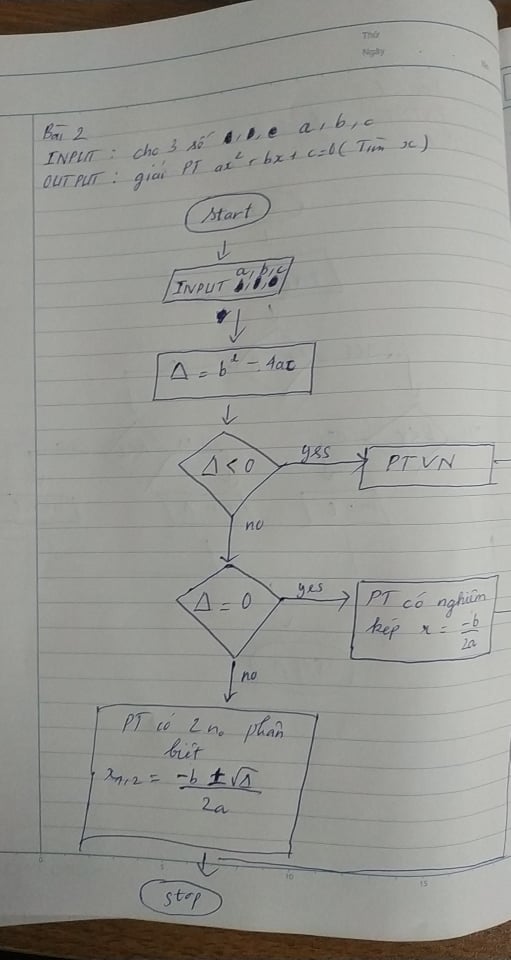 Thứ
Ngày
No
Bài 2
INPUT : cho 3 số a, b, c
OUTPUT : giải PT ax² + bx + c = 0 ( Tìm x )
start
a, b, c
INPUT
Δ = b² - 4ac
Δ < 0
yes
PTVN
no
Δ = 0
yes
PT có nghiệm
kép x = -b/2a
no
PT có 2 no phân
biệt
x1,2 = -b ± √Δ / 2a
stop
0 5 10 15